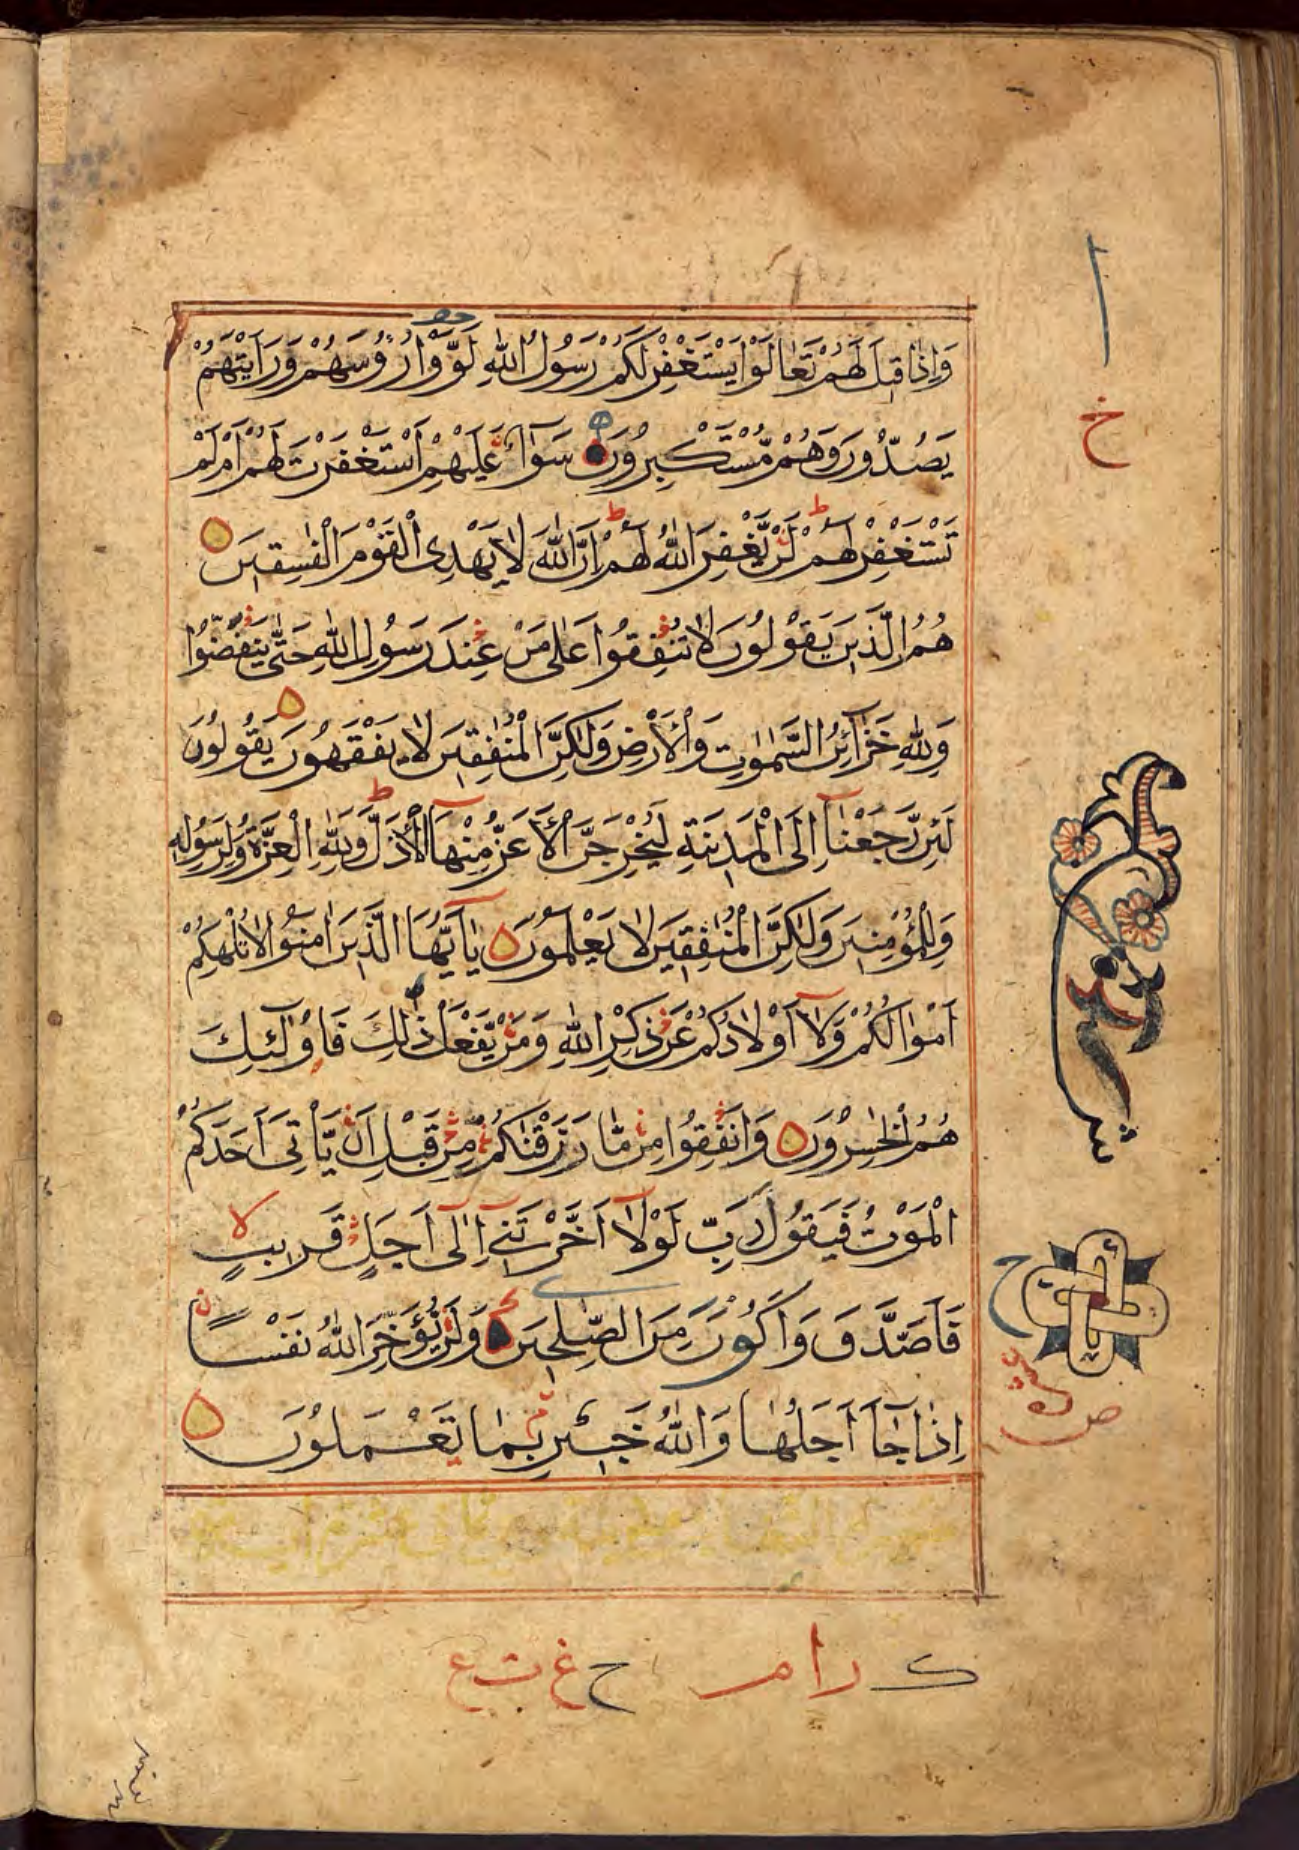 وَإِذَا قِيلَ لَهُمْ تَعَالَوْا يَسْتَغْفِرْ لَكُمْ رَسُولُ اللّٰهِ لَوَّوْا رُؤُسَهُمْ وَرَاَيْتَهُمْ
يَصُدُّونَ وَهُمْ مُّسْتَكْبِرُونَ سَوَآءٌ عَلَيْهِمْ اَسْتَغْفَرْتَ لَهُمْ اَمْ لَمْ
تَسْتَغْفِرْ لَهُمْ لَنْ يَّغْفِرَ اللّٰهُ لَهُمْ اِنَّ اللّٰهَ لَا يَهْدِى الْقَوْمَ الْفٰسِقِينَ
هُمُ الَّذِينَ يَقُولُونَ لَا تُنْفِقُوا عَلٰى مَنْ عِنْدَ رَسُولِ اللّٰهِ حَتّٰى يَنْفَضُّوْا
وَلِلّٰهِ خَزَآئِنُ السَّمٰوٰتِ وَالْاَرْضِ وَلٰكِنَّ الْمُنٰفِقِينَ لَا يَفْقَهُونَ يَقُولُونَ
لَئِنْ رَّجَعْنَآ اِلَى الْمَدِينَةِ لَيُخْرِجَنَّ الْاَعَزُّ مِنْهَا الْاَذَلَّ وَلِلّٰهِ الْعِزَّةُ وَلِرَسُولِهِ
وَلِلْمُؤْمِنِينَ وَلٰكِنَّ الْمُنٰفِقِينَ لَا يَعْلَمُونَ يَآ اَيُّهَا الَّذِينَ اٰمَنُوْا لَا تُلْهِكُمْ
اَمْوَالُكُمْ وَلَآ اَوْلَادُكُمْ عَنْ ذِكْرِ اللّٰهِ وَمَنْ يَّفْعَلْ ذٰلِكَ فَاُولٰٓئِكَ
هُمُ الْخٰسِرُونَ وَاَنْفِقُوا مِنْ مَّا رَزَقْنٰكُمْ مِّنْ قَبْلِ اَنْ يَّاْتِىَ اَحَدَكُمُ
الْمَوْتُ فَيَقُولَ رَبِّ لَوْلَآ اَخَّرْتَنِىٓ اِلٰٓى اَجَلٍ قَرِيبٍ
فَاَصَّدَّقَ وَاَكُونَ مِنَ الصّٰلِحِينَ وَلَنْ يُّؤَخِّرَ اللّٰهُ نَفْسًا
اِذَا جَآءَ اَجَلُهَا وَاللّٰهُ خَبِيرٌ بِمَا تَعْمَلُونَ
ا
خ
ح
ص
ك را م ح غ ت ع